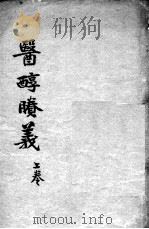 研究
醫醇賸義
上卷
mtoou.info